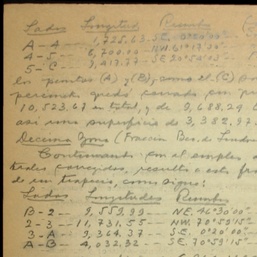 Lados Longitud Rumbo
A-4 -- 1,725.63 SE. 0°20'00"
4-5 -- 6,700.00 NW. 61°13'30"
5-C -- 9,413.77 SE. 20°54'03"
los puntos (A) y (B), como el (C) son
perímetro quedó cerrado con
10,523.67 en total, y de 9,688.29
así una superficie de 3,382,97
Decima Zona (Fracción Bco. de Londres
Continuando con el empleo de
trales corregidas, resulta a esta
de un trapecio, como sigue:
Lados Longitudes Rumbos
B-2 -- 9,559.99 -- NE. 46°30'00"
2-3 -- 11,731.55 NW. 70°59'15"
3-A -- 9,364.37 -- SE. 0°20'00"
A-B -- 4,032.32 -- SE. 70°59'15"